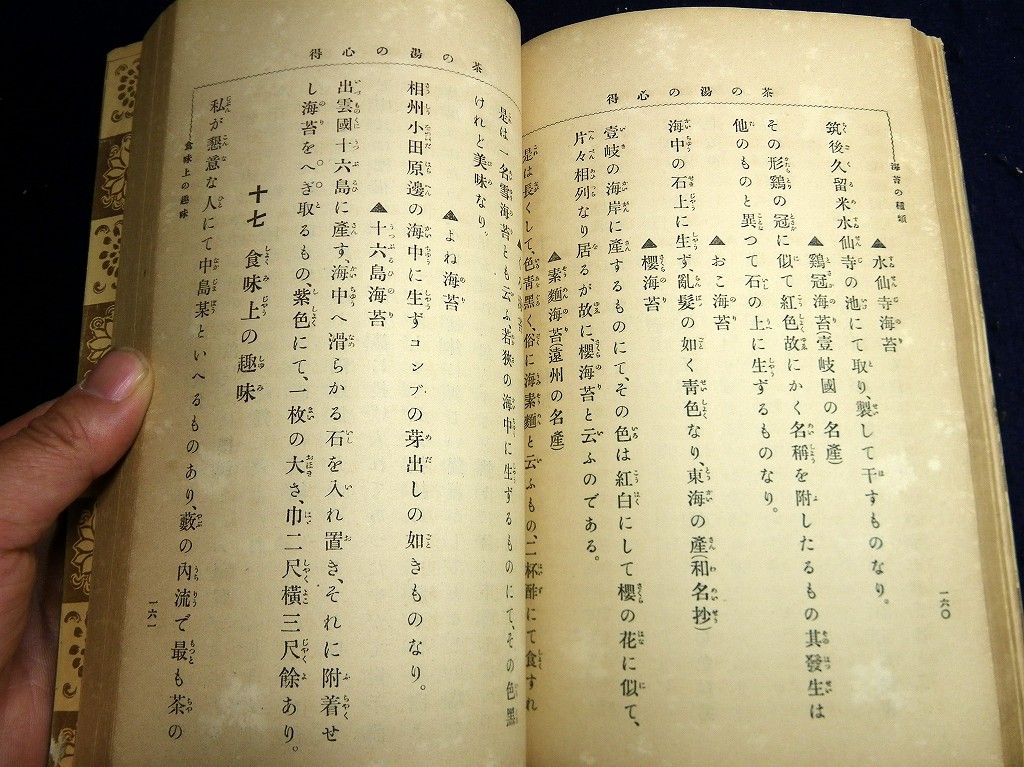 茶の湯の心得
海苔の種類
▲水仙寺海苔
筑後久留米水仙寺の池にて取り、製して干すものなり。
▲鷄冠海苔(壹岐國の名產)
その形鷄の冠に似て紅色故にかく名稱を附したるもの其發生は
他のものと異つて石の上に生ずるものなり。
▲おこ海苔
海中の石上に生ず亂髮の如く靑色なり、東海の產(和名抄)
▲櫻海苔
壹岐の海岸に產するものにて、その色は紅白にして櫻の花に似て、
片々相列なり居るが故に、櫻海苔と云ふのである。
▲素麵海苔(遠州の名產)
是は長くして、色靑黑く、俗に海素麵と云ふもの、二杯酢にて食すれ
一六〇
茶の湯の心得
是は一名雪海苔とも云ふ若狹の海中に生ずるものにて、その色黑
けれと美味なり。
▲よね海苔
相州小田原邊の海中に生ずコンブの芽出しの如きものなり。
▲十六島海苔
出雲國十六島に產す、海中へ滑らかる石を入れ置き、それに附着せ
し海苔をへぎ取るもの、紫色にて、一枚の大さ、巾二尺橫三尺餘あり。
十七 食味上の趣味
私が懇意な人にて中島某といへるものあり、藪の內流で最も茶の
食味上の趣味
一六一